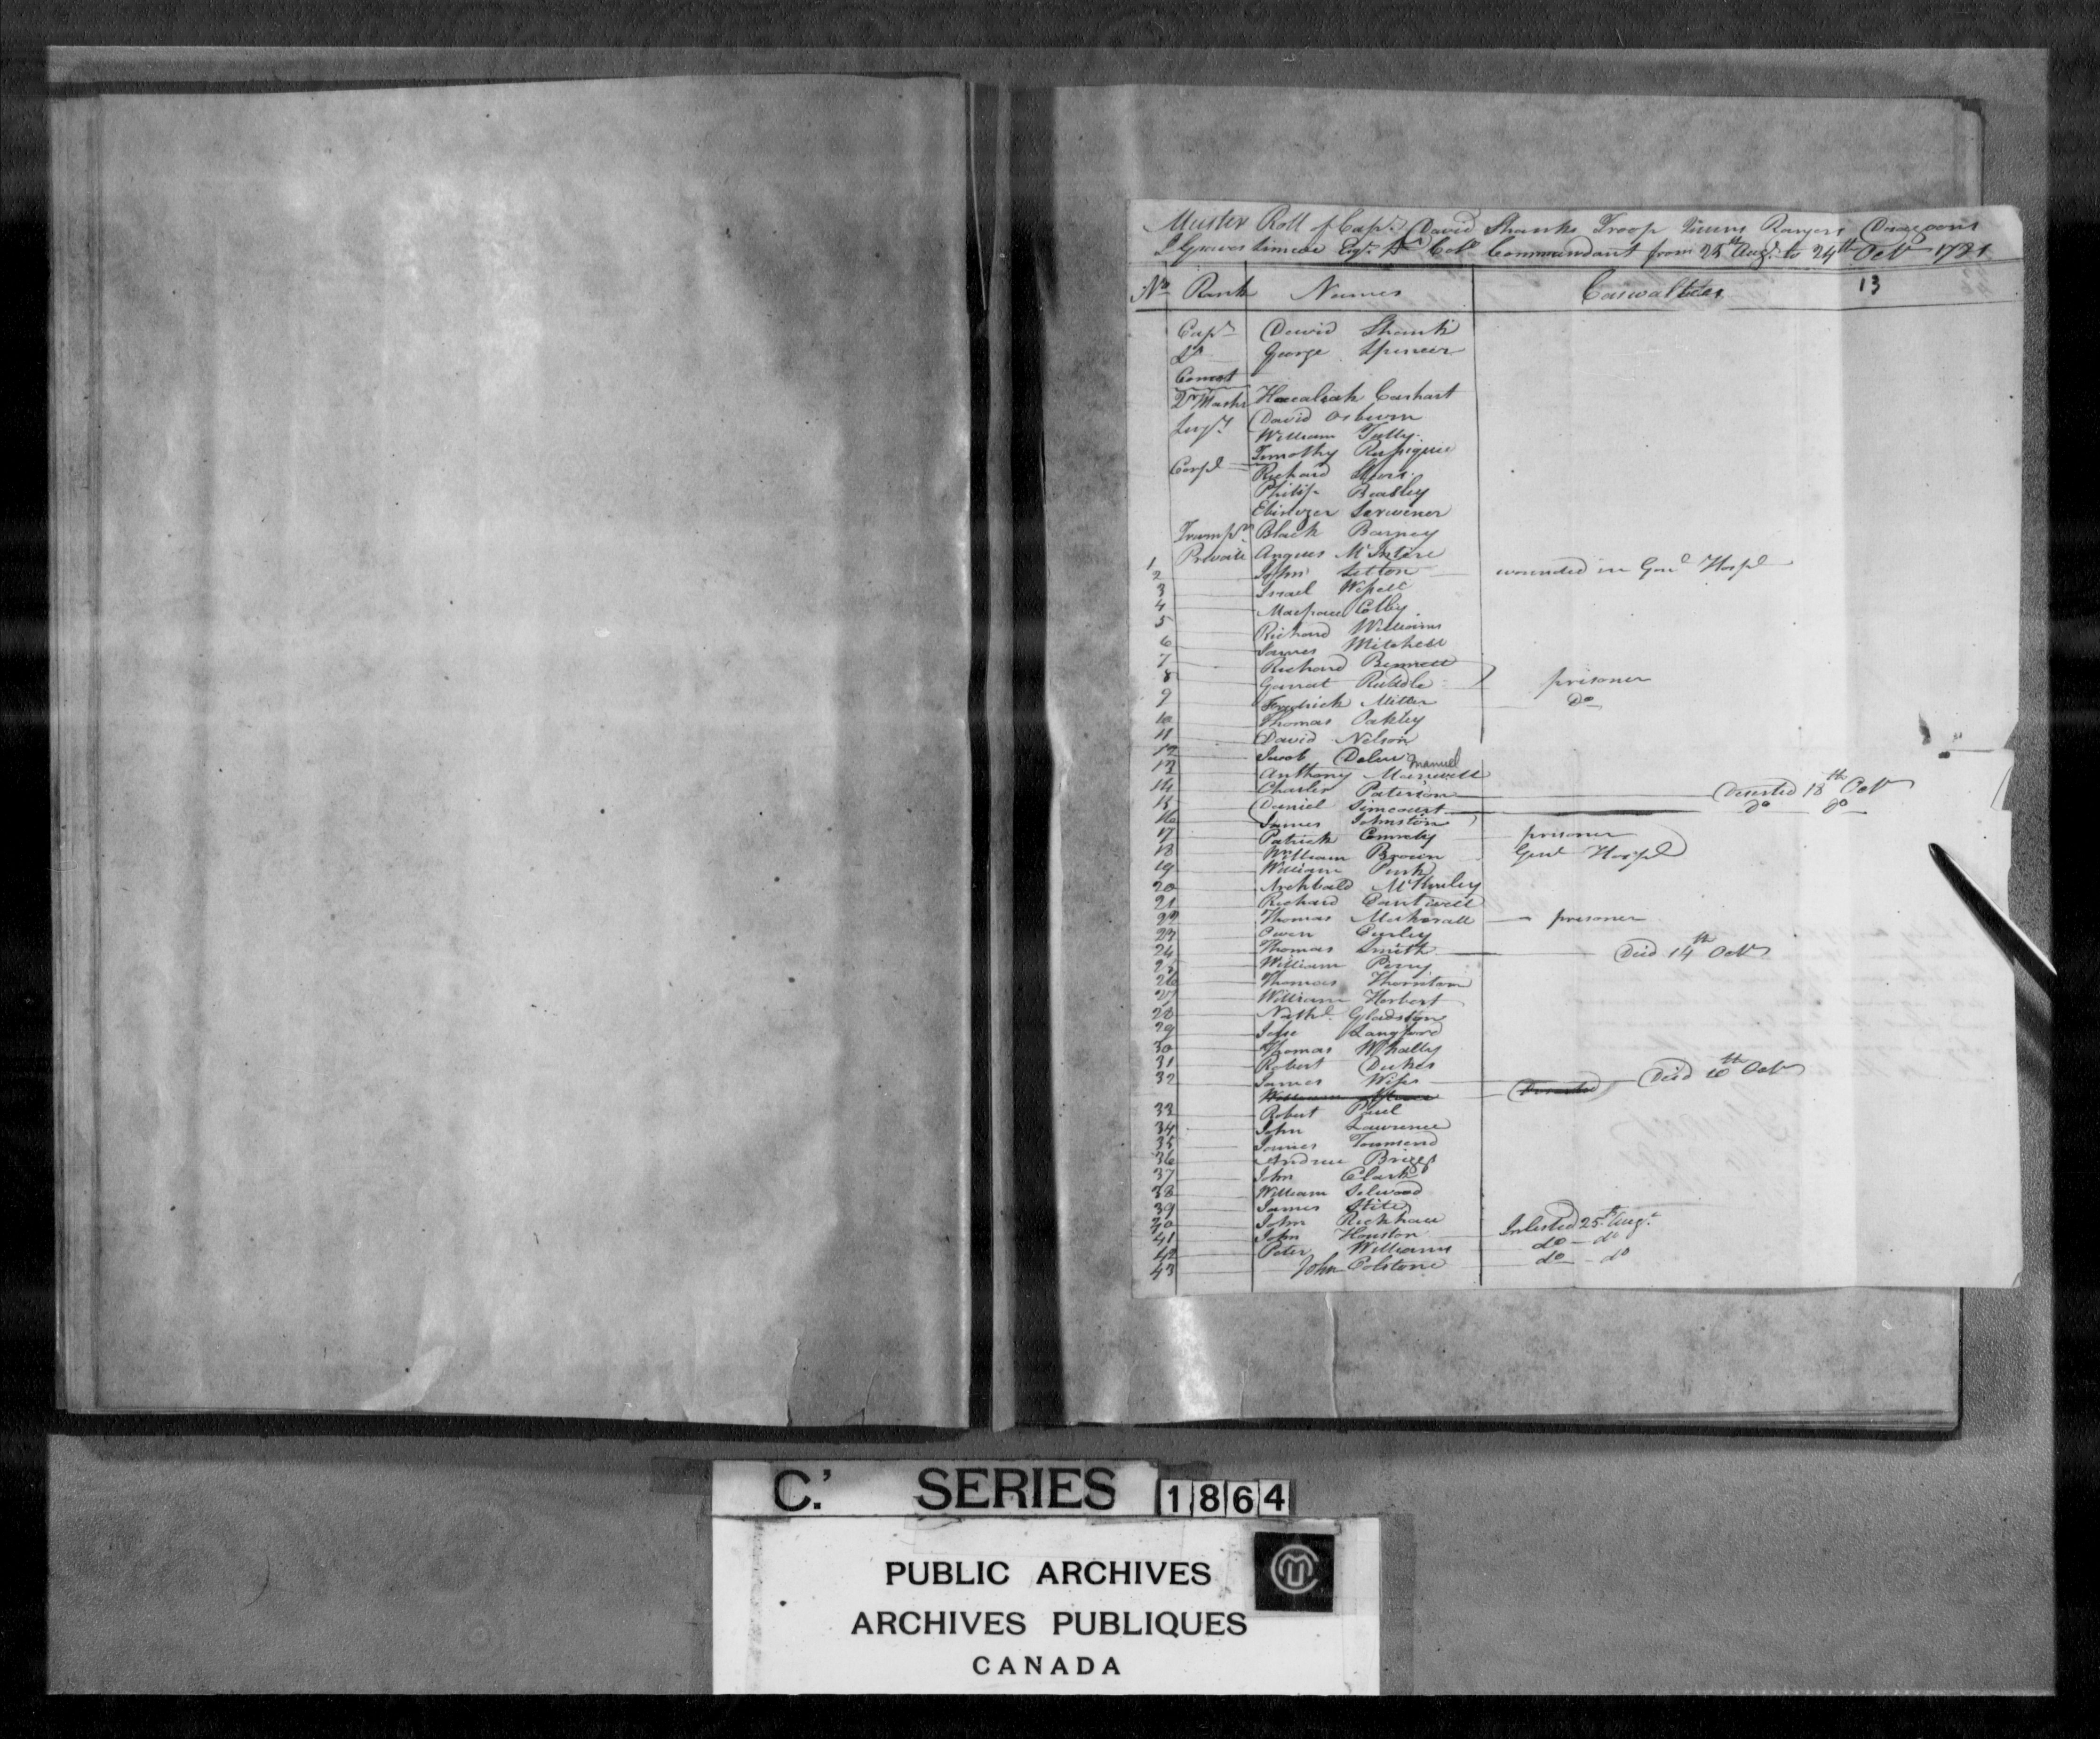 Muster Roll of Capt David Shanks Troop Queens Rangers Dragoons
J Graves Simcoe Esqr Lt Coll Commandant from 25th Augt to 24th Octr 1781
No Rank Names Casualties 13
Capt David Shank
Lt George Spencer
Cornet
Qr Mastr Hacaliah Carhart
Serjt David Osburn
William Tully
Timothy
Corpl Richard
Philip Beasley
Ebinezer Scrivener
Trumpr Black Barney
1 Private Angus McIntire
2 John Sitton wounded in Genl Hospl
3 Israel
4 Colby
5 Richard Williams
6 James Mitchell
7 Richard Bennett
8 Garrat Ruddle prisoner
9 Fredrick Miller Do
10 Thomas Oakley
11 David Nelson
12 Jacob
13 Anthony Manuel
14 Charles Paterson Deserted 18th Octr
15 Daniel Simcourt Do Do
16 James Johnston
17 Patrick prisoner
18 William Brown Genl Hospl
19 William
20 Archbald
21 Richard Cantwell
22 Thomas prisoner
23 Owen Curley
24 Thomas Smith Died 14th Octr
25 William Perry
26 Thomas Thorntom
27 William Herbert
28 Nathl Gladstyn
29 Langford
30 Thomas Whally
31 Robert Dukes
32 James Died 6th Octr
William
33 Robert Paul
34 John Lawrence
35 James Townsend
36 Andrew Briggs
37 John Clark
38 William Selwood
39 James Stite
40 John
41 John Houston Inlisted 25th Augt
42 Peter Williams do - do
43 John Colstone do - do
C.' SERIES 1864
PUBLIC ARCHIVES
ARCHIVES PUBLIQUES
CANADA